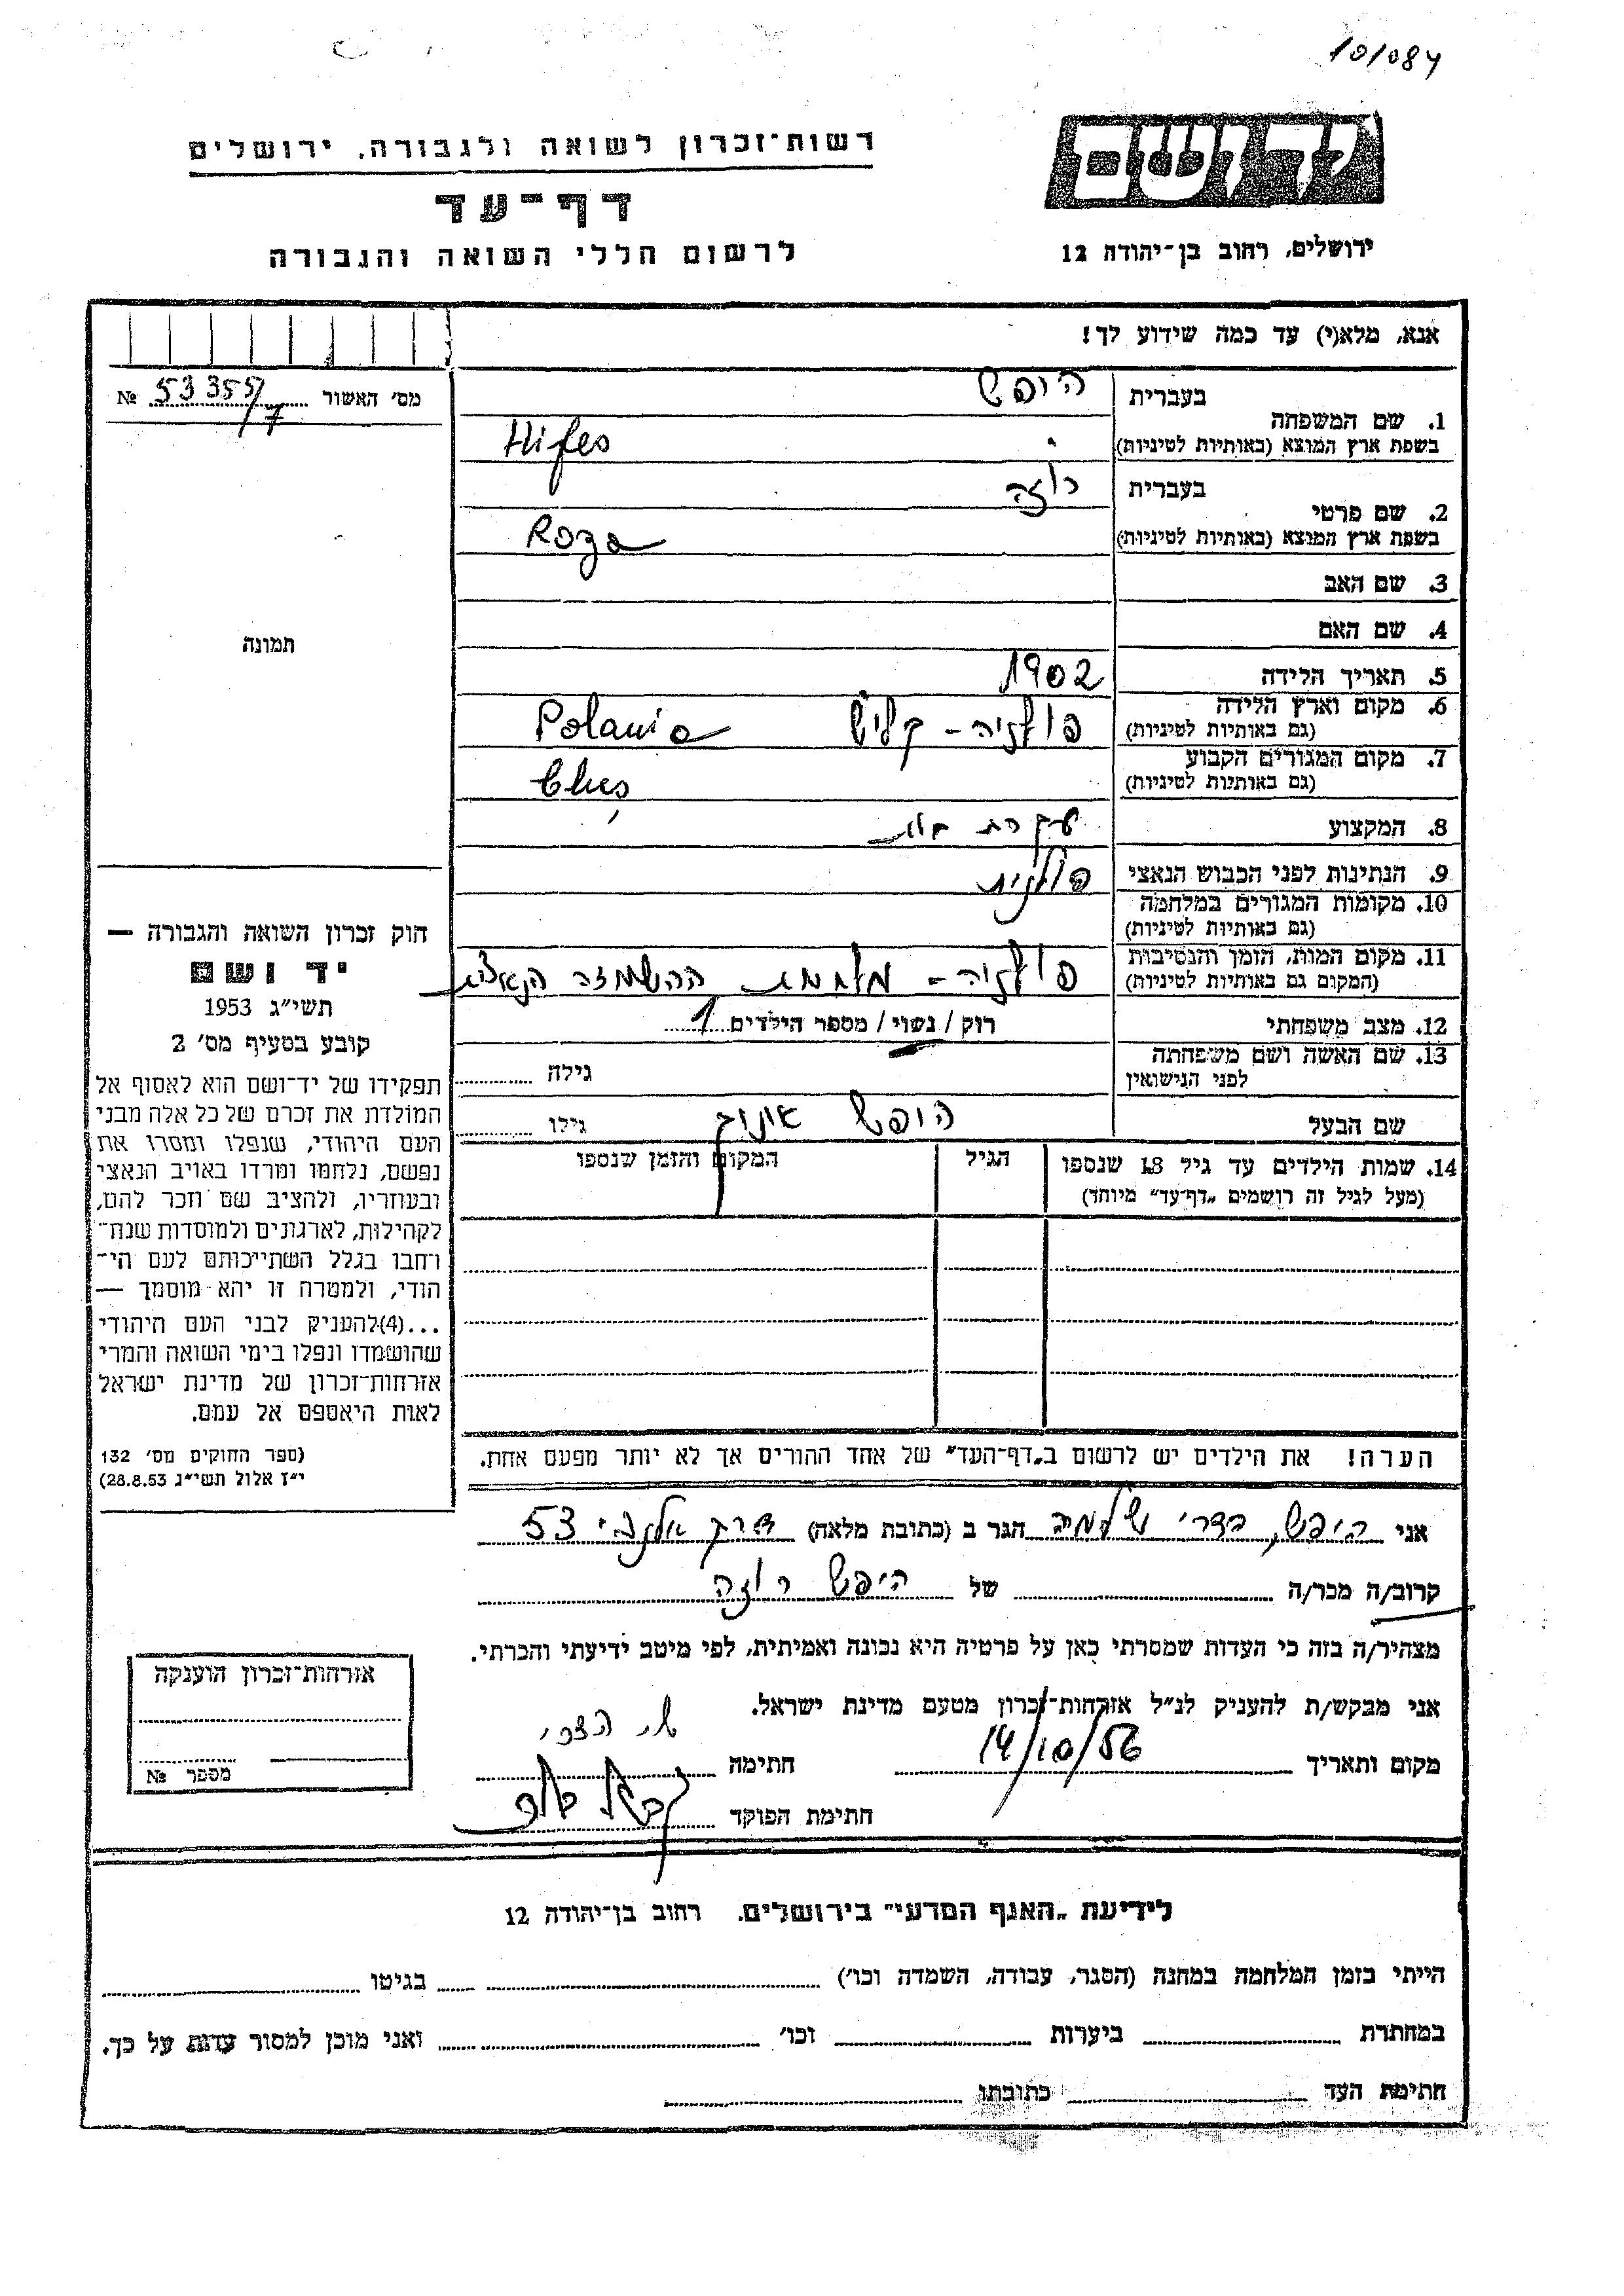 101084
רשות־זכרון לשואה ולגבורה, ירושלים
דף־עד
לרשום חללי השואה והגבורה
יד ושם
ירושלים, רחוב בן־יהודה 12
אנא, מלא(י) עד כמה שידוע לך!
מס׳ האשור 53355/7 №
תמונה
1. שם המשפחה
בעברית היפש
בשפת ארץ המוצא (באותיות לטיניות) Hifes
2. שם פרטי
בעברית רוזה
בשפת ארץ המוצא (באותיות לטיניות) Roza
3. שם האב
4. שם האם
5. תאריך הלידה 1902
6. מקום וארץ הלידה פולניה - קליש Polania
(גם באותיות לטיניות)
7. מקום המגורים הקבוע
(גם באותיות לטיניות)
8. המקצוע עקרת בית
9. הנתינות לפני הכבוש הנאצי פולנית
10. מקומות המגורים במלחמה
(גם באותיות לטיניות)
11. מקום המות, הזמן והנסיבות פולניה - מלחמת ההשמדה הנאצית
(המקום גם באותיות לטיניות)
12. מצב משפחתי רוק / נשוי / מספר הילדים 1
13. שם האשה ושם משפחתה
לפני הנישואין גילה
שם הבעל היפש גילו
14. שמות הילדים עד גיל 18 שנספו הגיל המקום והזמן שנספו
(מעל לגיל זה רושמים „דף־עד” מיוחד)
חוק זכרון השואה והגבורה —
יד ושם
תשי״ג 1953
קובע בסעיף מס׳ 2
תפקידו של יד־ושם הוא לאסוף אל
המולדת את זכרם של כל אלה מבני
העם היהודי, שנפלו ומסרו את
נפשם, נלחמו ומרדו באויב הנאצי
ובעוזריו, ולהציב שם וזכר להם,
לקהילות, לארגונים ולמוסדות שנח־
רחבו בגלל השתייכותם לעם הי־
הודי, ולמטרה זו יהא מוסמך —
...(4)להעניק לבני העם היהודי
שהושמדו ונפלו בימי השואה והמרי
אזרחות־זכרון של מדינת ישראל
לאות היאספם אל עמם.
(ספר החוקים מס׳ 132
י״ז אלול תשי״ג 28.8.53)
הערה! את הילדים יש לרשום ב„דף־העד” של אחד ההורים אך לא יותר מפעם אחת.
אני היפש, שלמה הגר ב (כתובת מלאה) דרך אלנבי 53
קרוב/ה מכר/ה של היפש רוזה
מצהיר/ה בזה כי העדות שמסרתי כאן על פרטיה היא נכונה ואמיתית, לפי מיטב ידיעתי והכרתי.
אני מבקש/ת להעניק לנ״ל אזרחות־זכרון מטעם מדינת ישראל.
מקום ותאריך 14/10/56 חתימה
חתימת הפוקד
אזרחות־זכרון הוענקה
מספר №
לידיעת „האגף המדעי” בירושלים, רחוב בן־יהודה 12
הייתי בזמן המלחמה במחנה (הסגר, עבודה, השמדה וכו׳) בגיטו
במחתרת ביערות וכו׳ ואני מוכן למסור עדות על כך.
חתימת העד כתובתו